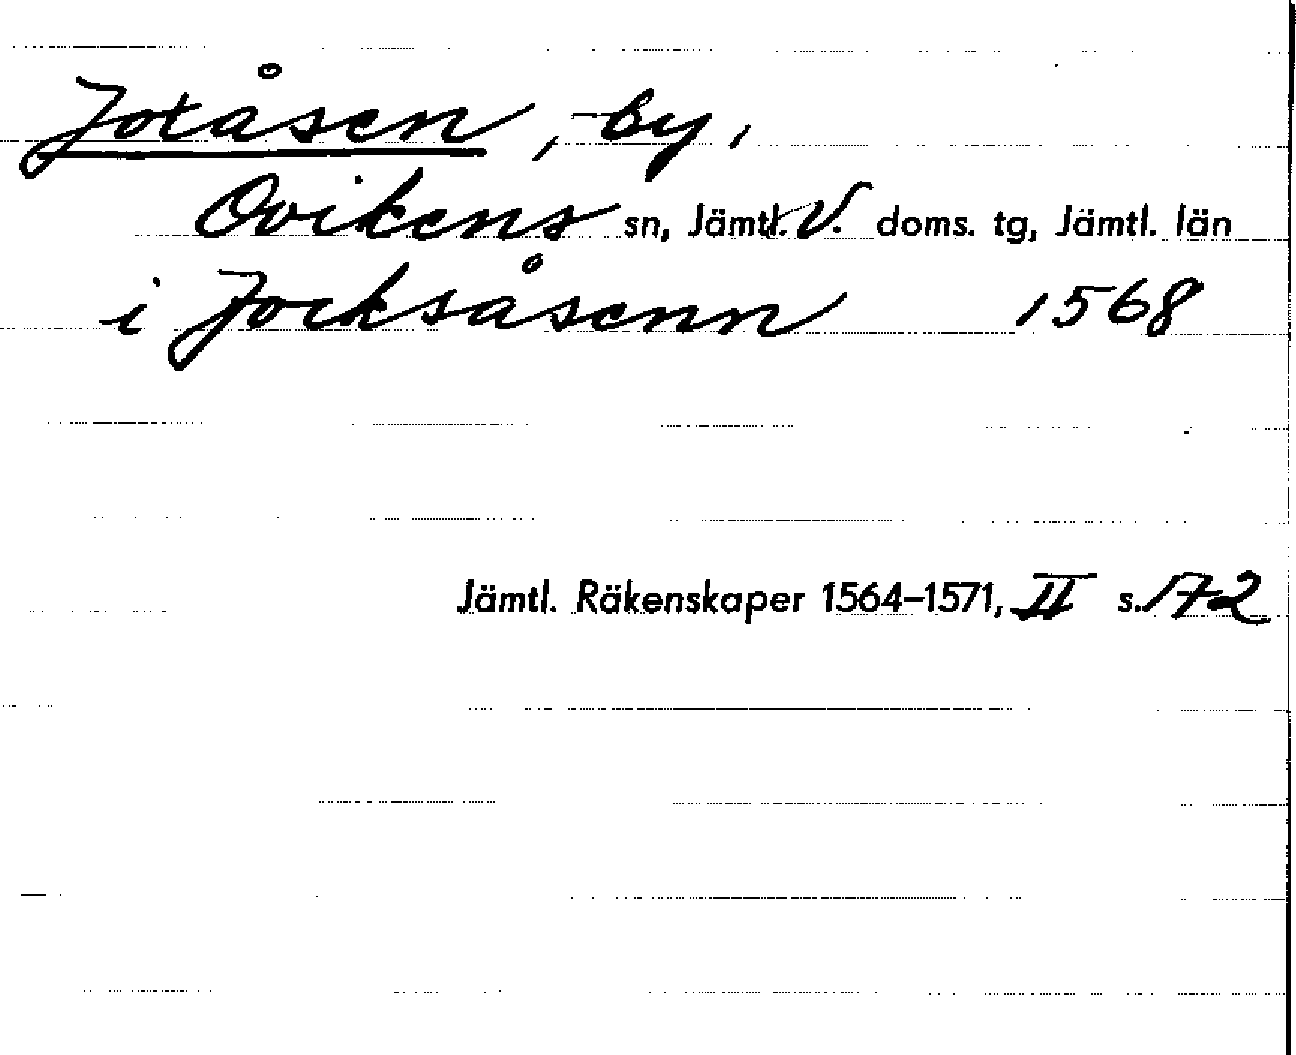 Joxåsen, by,
Ovikens sn, Jämtl. V. doms. tg, Jämtl. län
i Jocksåsenn 1568
Jämtl. Räkenskaper 1564–1571, II s. 172